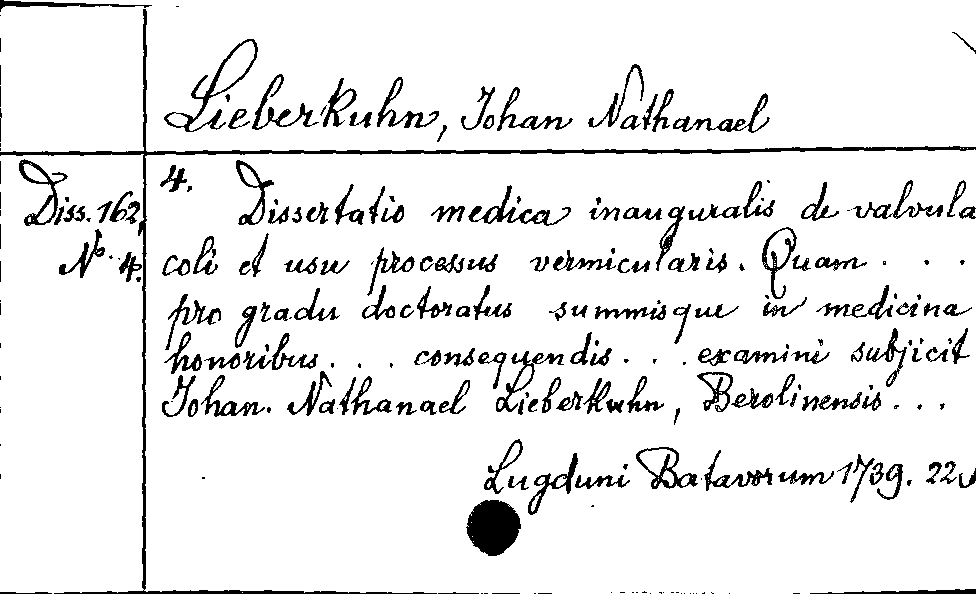 Lieberkuhn, Johan Nathanael
Diss. 162,
No. 4.
4. Dissertatio medica inauguralis de valvula
coli et usu processus vermicularis. Quam . . .
pro gradu doctoratus summisque in medicina
honoribus . . . consequendis . . . examini subjicit
Johan. Nathanael Lieberkuhn, Berolinensis . . .
Lugduni Batavorum 1739. 22